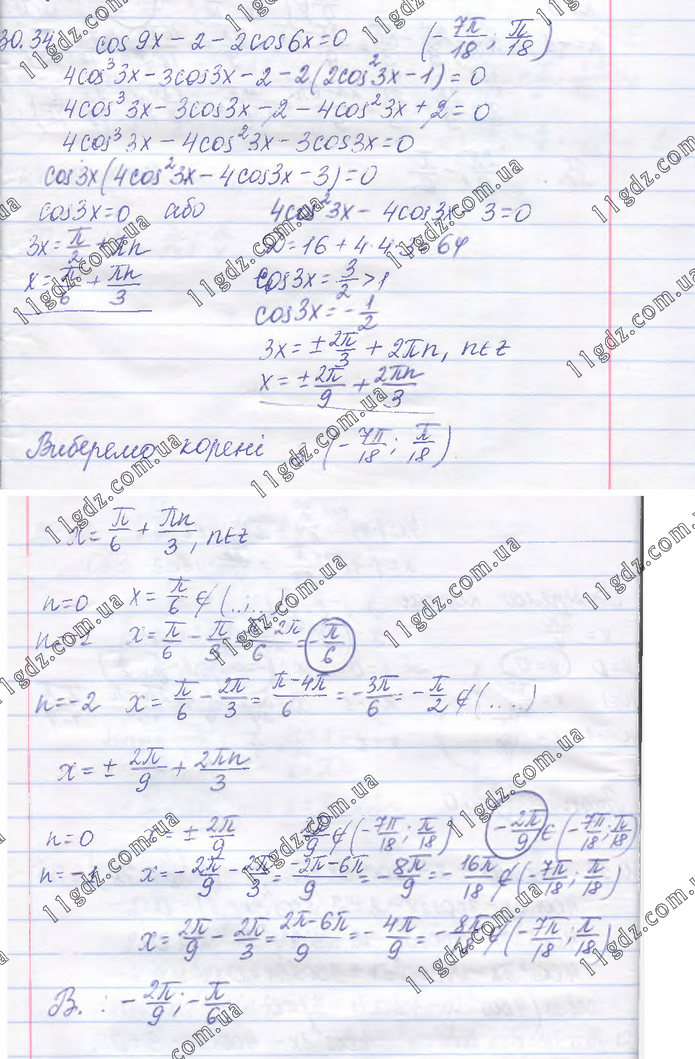 30.34 cos9x-2-2cos6x=0 (-7π/18; π/18)
4cos³3x-3cos3x-2-2(2cos²3x-1)=0
4cos³3x-3cos3x-2-4cos²3x+2=0
4cos³3x-4cos²3x-3cos3x=0
cos3x(4cos²3x-4cos3x-3)=0
cos3x=0 або 4cos²3x-4cos3x-3=0
3x=π/2+πn D=16+4·4·3=64
x=π/6+πn/3 cos3x=3/2>1
cos3x=-1/2
3x=±2π/3+2πn, n∈z
x=±2π/9+2πn/3
Виберемо корені (-7π/18; π/18).
x=π/6+πn/3, n∈z
n=0 x=π/6∉(...;...)
x=π/6-π/3 -2π/6=-π/6
n=-2 x=π/6-2π/3=π-4π/6=-3π/6=-π/2∉(....)
x=±2π/9+2πn/3
n=0 x=±2π/9 ∉(-7π/18; π/18) -2π/9∈(-7π/18; π/18)
n=-1 x=-2π/9-2π/3=-2π-6π/9=-8π/9=-16π/18∉(-7π/18; π/18)
x=2π/9-2π/3=2π-6π/9=-4π/9=-8π/18∉(-7π/18; π/18)
В.: -2π/9; -π/6
11gdz.com.ua